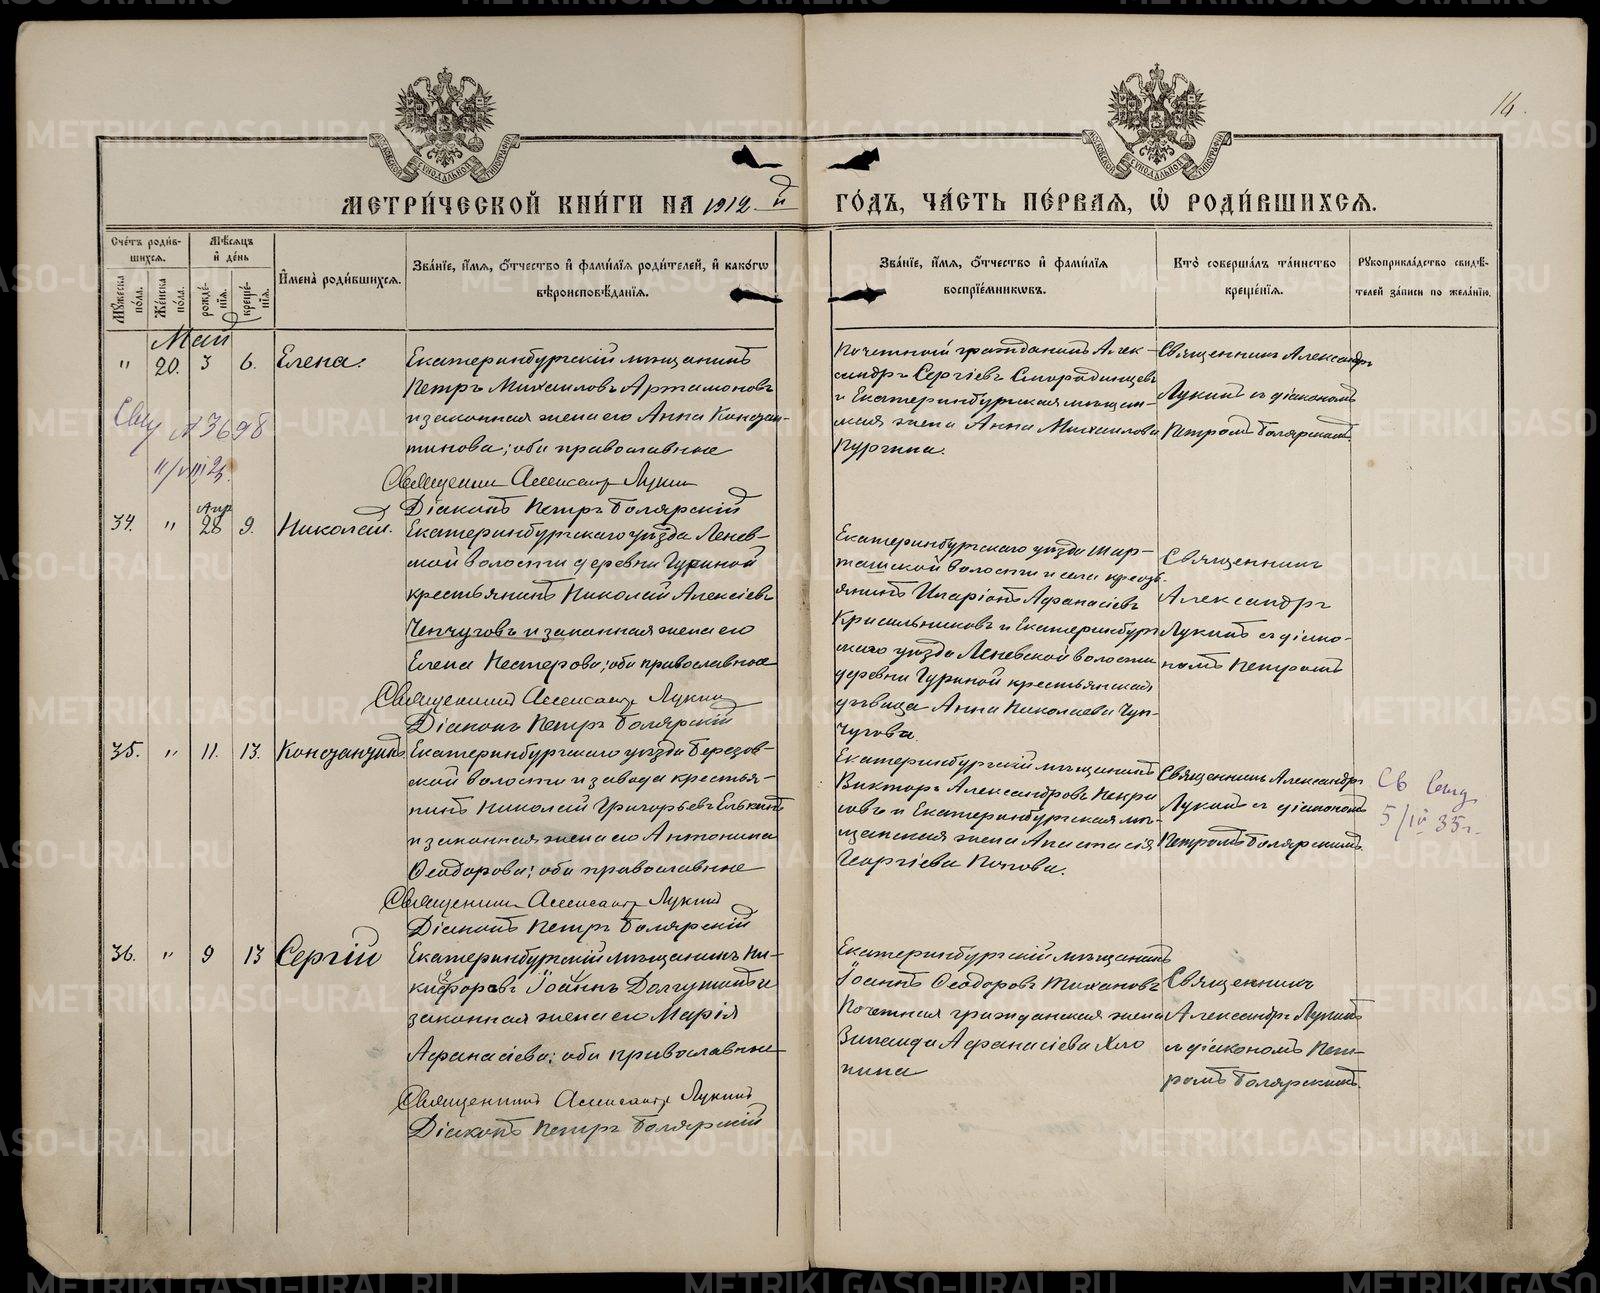 14
МЕТРИ́ЧЕСКОЙ КНИ́ГИ НА 1912й
ГО́ДЪ, ЧА́СТЬ ПЕ́РВАЯ, Ѡ҆ РОДИ́ВШИХСЯ.
Сче́тъ роди́в-
шихся.
Мꙋ́жеска по́ла.
Же́нска по́ла.
Мѣ́сяцъ
и҆ де́нь
рожде́-
нїя.
креще́-
нїя.
И҆мена̀ роди́вшихся.
Зва́нїе, и҆́мя, ѻ҆́тчество и҆ фами́лїя роди́телей, и҆ како́гѡ
вѣроисповѣ́данїя.
Зва́нїе, и҆́мя, ѻ҆́тчество и҆ фами́лїя
воспрїе́мникѡвъ.
Кто̀ соверша́лъ та́инство
креще́нїя.
Рꙋкоприкла́дство свидѣ́-
телей за́писи по жела́нїю.
Май
" 20. 3 6. Елена.
Екатеринбургскій мѣщанинъ
Петръ Михаиловъ Артамоновъ
и законная жена его Анна Констан-
тинова; оба православные
Священникъ Александръ Лукинъ
Діаконъ Петръ Болярскій
Почетный гражданинъ Алек-
сандръ Сергіевъ Смородинцевъ
и Екатеринбургская мѣщан-
ская жена Анна Михаилова
Кургина.
Священникъ Александръ
Лукинъ съ діакономъ
Петромъ Болярскимъ.
№ 3698
34. " Апр 28 9. Николай.
Екатеринбургскаго уѣзда Ленев-
ской волости деревни Гуриной
крестьянинъ Николай Алексіевъ
Чепчуговъ и законная жена его
Елена Нестерова; оба православные
Священникъ Александръ Лукинъ
Діаконъ Петръ Болярскій
Екатеринбургскаго уѣзда Шар-
ташской волости и села кресть-
янинъ Иларіонъ Афанасіевъ
Красильниковъ и Екатеринбург-
скаго уѣзда Леневской волости
деревни Гуриной крестьянская
дѣвица Анна Николаева Чеп-
чугова
Священникъ
Александръ
Лукинъ съ діако-
номъ Петромъ
35. " 11. 13. Константинъ
Екатеринбургскаго уѣзда Березов-
ской волости и завода крестья-
нинъ Николай Григорьевъ Елькинъ
и законная жена его Антонина
Ѳеодорова; оба православные
Священникъ Александръ Лукинъ
Діаконъ Петръ Болярскій
Екатеринбургскій мѣщанинъ
Викторъ Александровъ Некра
совъ и Екатеринбургская мѣ-
щанская жена Анастасія
Георгіева Попова.
Священникъ Александръ
Лукинъ съ діакономъ
Петромъ Болярскимъ
5/IV 35г.
36. " 9 13 Сергій
Екатеринбургскій мѣщанинъ Ни-
кифоровъ Іоаннъ Долгушинъ и
законная жена его Марія
Афанасіева; оба православные
Священникъ Александръ Лукинъ
Діаконъ Петръ Болярскій
Екатеринбургскій мѣщанинъ
Іоаннъ Ѳеодоровъ Тихановъ
Почетная гражданская жена
Зинаида Афанасіева Хло
пина
Священникъ
Александръ Лукинъ
съ діакономъ Пет-
ромъ Болярскимъ.
METRIKI.GASO-URAL.RU